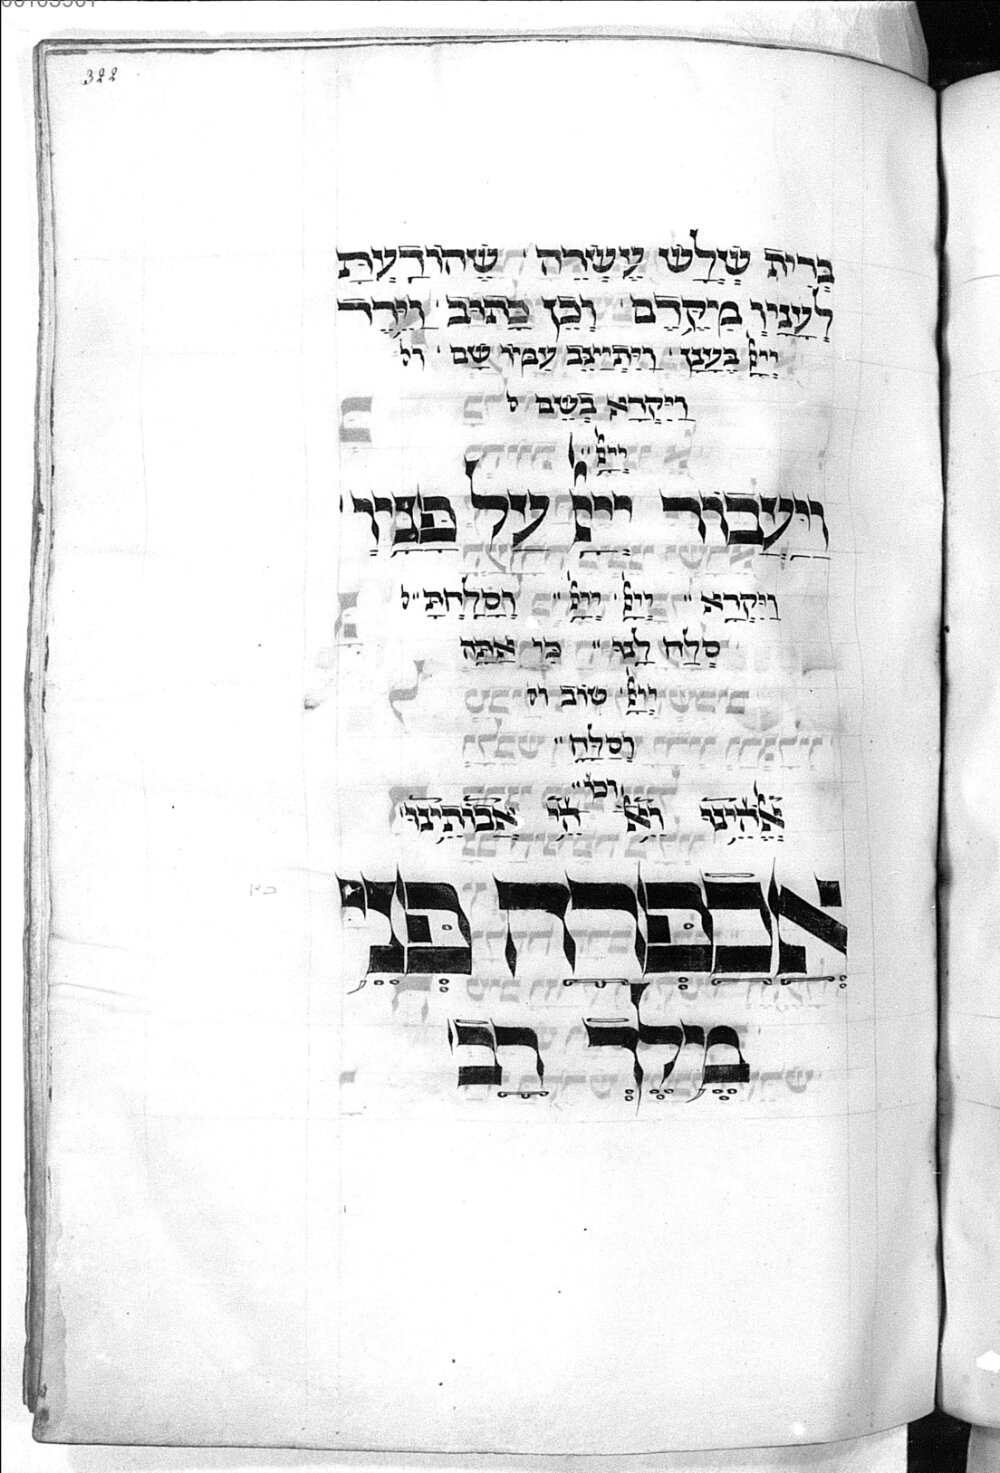 322
בְּרִית שְׁלֹשׁ עֶשְׂרֵה · שֶׁהוֹדַעְתָּ
לֶעָנָיו מִקֶּדֶם · וְכֵן כָּתוּב · וַיֵּרֶד
ייָ בֶּעָנָן · וַיִּתְיַצֵּב עִמּוֹ שָׁם · ול
וַיִּקְרָא בְשֵׁם ל
ייָ ״
וַיַּעֲבוֹר ייָ עַל פָּנָיו
וַיִּקְרָא ״ ייָ ייָ ״ וְסָלַחְתָּ ״ ל
סְלַח לָנוּ ״ כִּי אַתָּה
ייָ טוֹב וס
וְסַלָּח ״
וכו ״
אֱלֹהֵינוּ וֵא הֵי אֲבוֹתֵינוּ
אֲכַפְּרָה פְּנֵי
מֶלֶךְ רַב